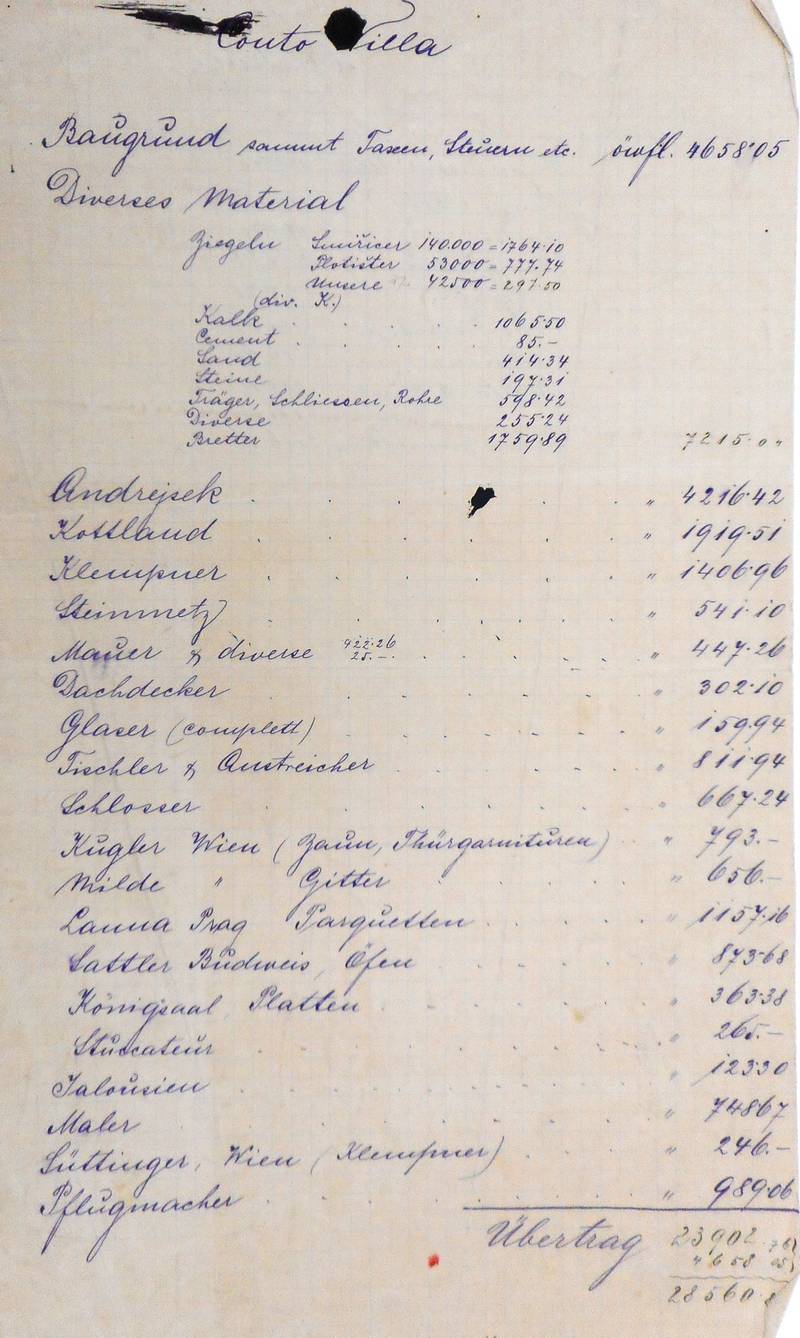 Conto Villa
Baugrund sammt Taxen, Steuern etc. öwfl. 4658·05
Diverses Material
Ziegeln Smiřicer 140.000 = 1764·10
Plotišter 53000 = 777.74
Unsere 42500 = 297.50
(div. K.)
Kalk . . . . 1065·50
Cement . . . . 85.–
Sand 414·34
Steine 197·31
Träger, Schliessen, Rohre 598·42
Diverse 255·24
Bretter 1759·89 7215·0 „
Andrejsek . . . . . „ 4216·42
Kottland . . . . . „ 1919·51
Klempner . . . . . „ 1406·96
Steinmetz . . . . . „ 541·10
Mauer & diverse 422·26 25.– . . . . „ 447·26
Dachdecker . . . . . „ 302·10
Glaser (complett) . . . . „ 159.94
Tischler & Anstreicher . . . . „ 811·94
Schlosser . . . . . „ 667·24
Kugler Wien (Zaun, Thürgarnituren) . . „ 793.–
Milde „ Gitter . . . . „ 656.–
Lanna Prag Parquetten . . . . „ 1157·16
Sattler Budweis, Öfen . . . . „ 873·68
Königsaal, Platten . . . . „ 363·38
Stuccateur . . . . . „ 265.–
Jalousien . . . . . „ 123·30
Maler . . . . . „ 748·67
Süttinger, Wien (Klempner) . . . . „ 246.–
Pflugmacher . . . . . „ 989·06
Übertrag 23902 76
4658 05
28560·8